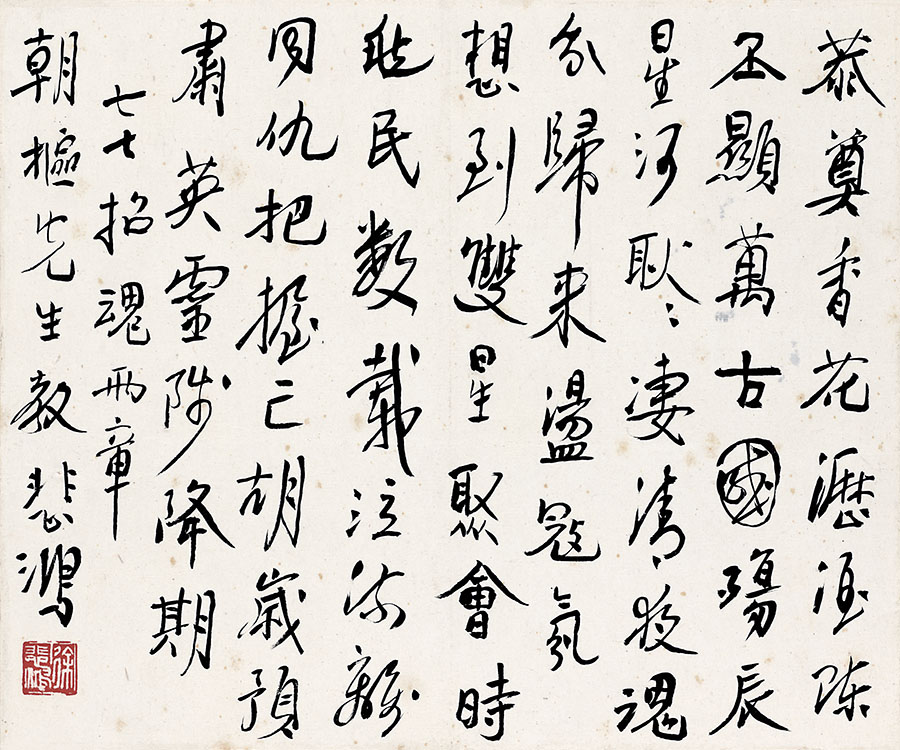 恭奠香花瀝酒陳
丕顯萬古國殤辰
星河耿〻淒清夜魂
兮歸來盪寇氛
想到雙星聚會時
民數載泣流離
同仇把握亡胡歲預
肅英靈陟降期
七七招魂兩章
朝樞先生教 悲鴻
徐悲鴻